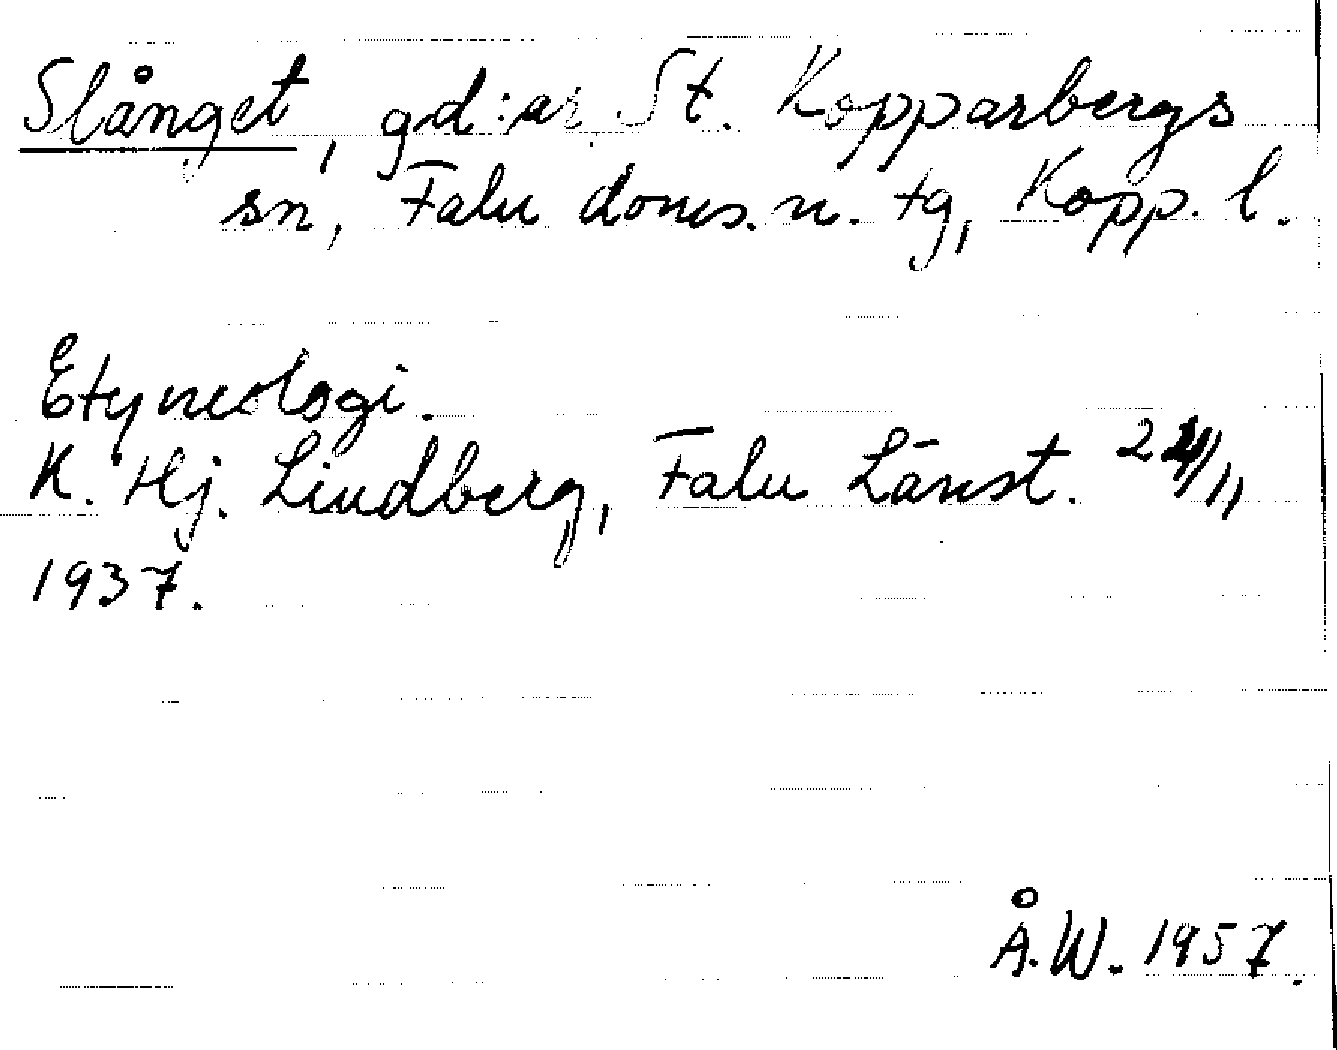 Slånget, gd:ar St. Kopparbergs
sn, Falu doms.n. tg, Kopp. l.
Etymologi.
K. Hj. Lindberg, Falu Länst.
1937.
Å.W. 1957.